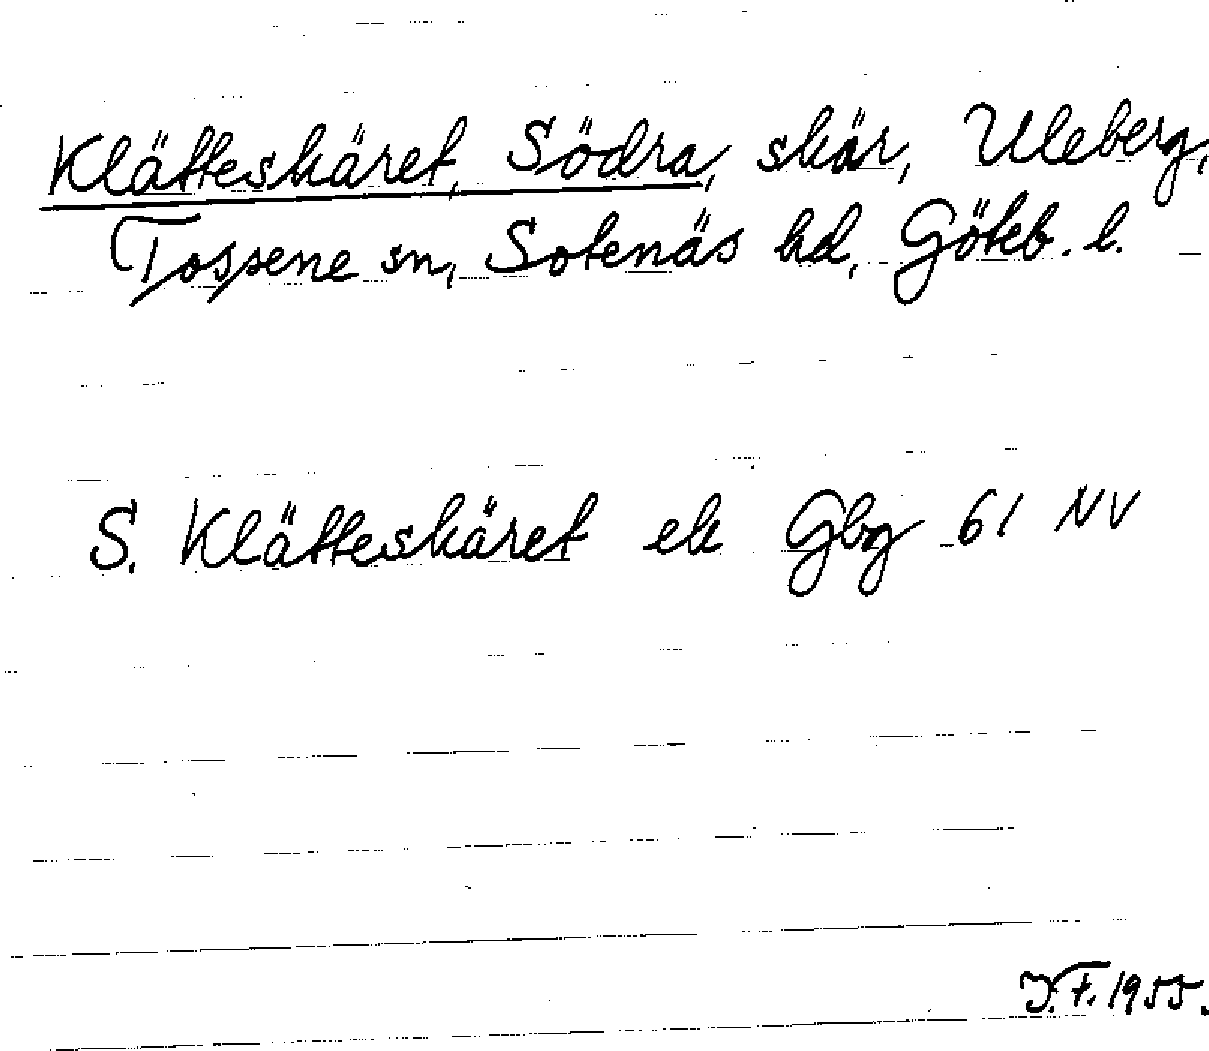 Klätteskäret, Södra, skär, Uleberg,
Tossene sn, Sotenäs hd, Göteb. l.
S. Klätteskäret ek Gbg 61 NV
J.F. 1955.